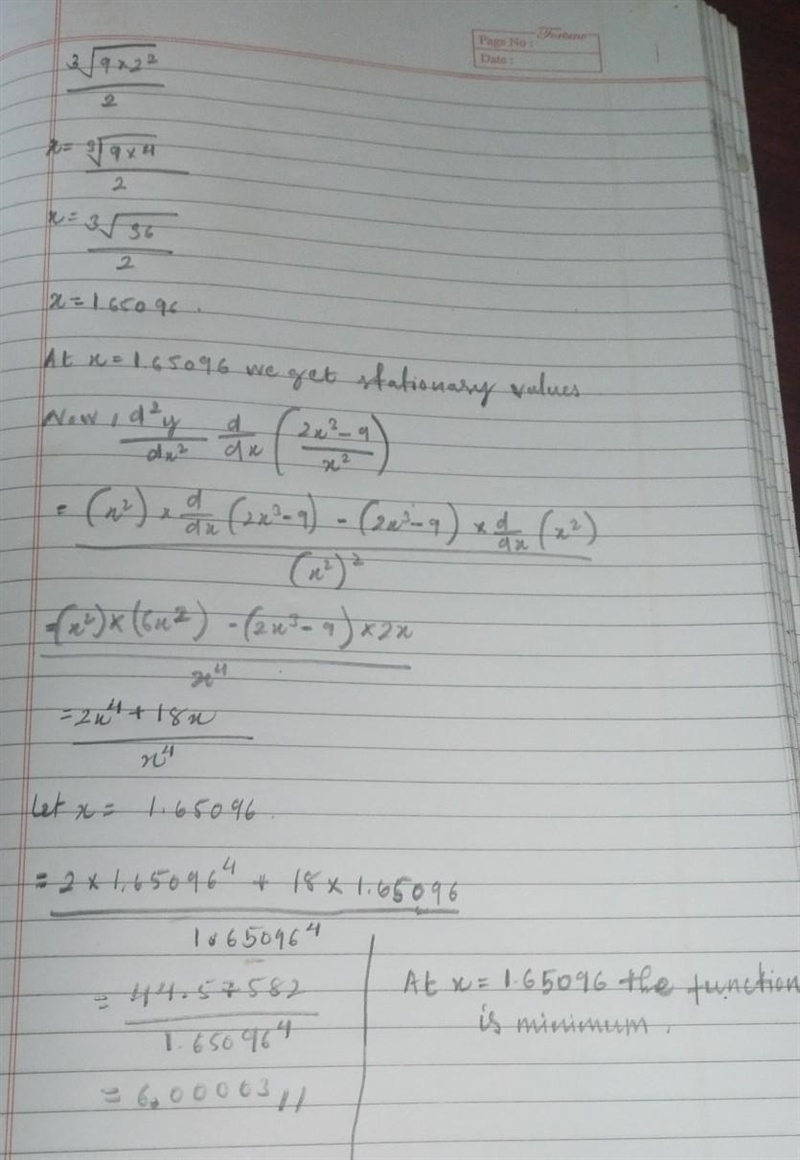 Fortune
Page No :
Date :
∛(9×2²)/2
x = ∛(9×4)/2
x = ∛36/2
x = 1.65096.
At x = 1.65096 we get stationary values
Now, d²y/dx² d/dx ((2x³-9)/x²)
= ((x²) × d/dx (2x³-9) - (2x³-9) × d/dx (x²))/(x²)²
= ((x²) × (6x²) - (2x³-9) × 2x)/x⁴
= (2x⁴ + 18x)/x⁴
Let x = 1.65096
= (2 × 1.65096⁴ + 18 × 1.65096)/1.65096⁴
= 44.57582/1.65096⁴
= 6.00003 //
At x = 1.65096 the function
is minimum.